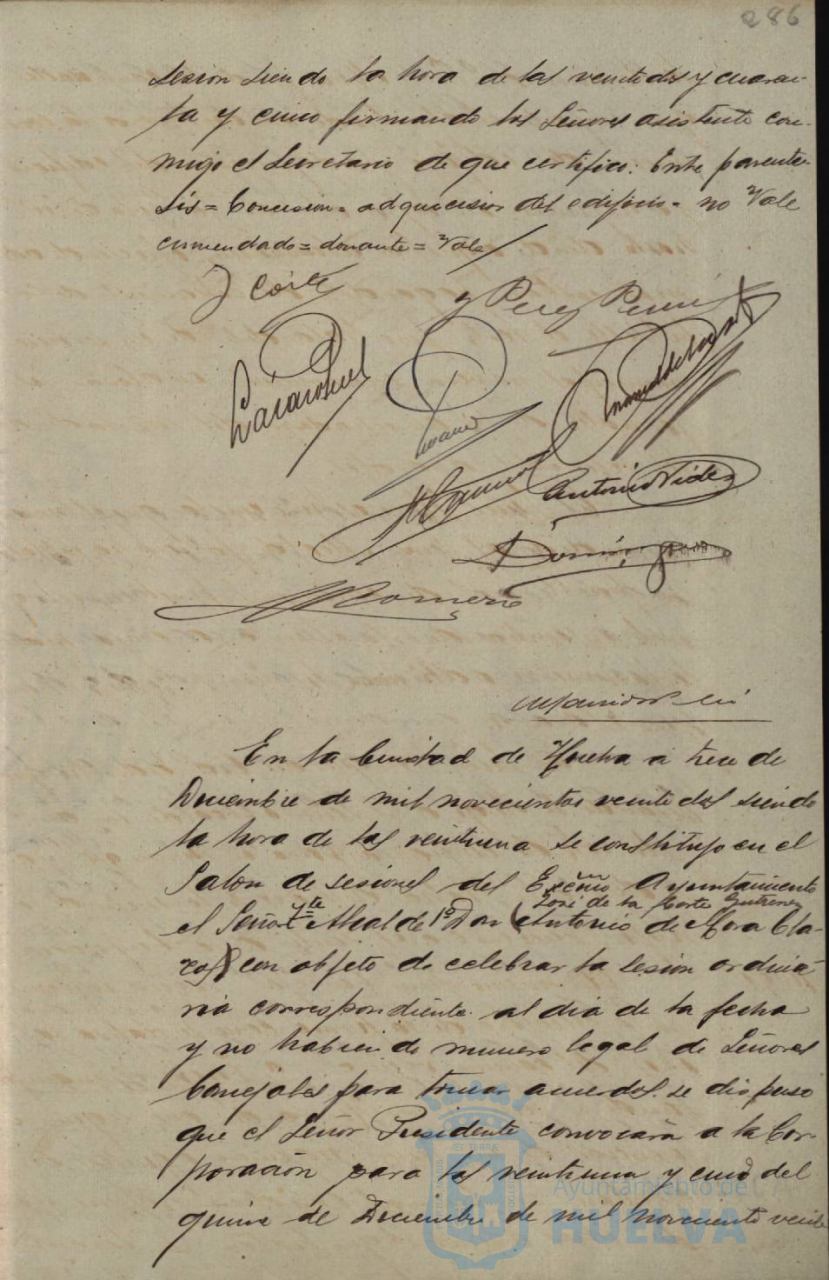 286
sesion siendo la hora de las veintidos y cuaren-
ta y cinco firmando los Señores asistente con-
migo el Secretario de que certifico: Entre parente-
sis = Concesion = adquicision del edificio = no Vale
enmendado = donante = Vale
J Corte
y Perez
Antonio Videz
Dominguez
A Romero
En la Ciudad de Huelva a trece de
Diciembre de mil novecientos veinte dos siendo
la hora de las veintiuna se constituyo en el
Salon de sesiones del Excmo Ayuntamiento
José de la Corte Gutierrez
el Señor Tte Alcalde 1º Don (Antonio de Mora Cla-
ros) con objeto de celebrar la sesion ordina-
ria correspondiente al dia de la fecha
y no habiendo numero legal de Señores
Concejales para tomar acuerdos se dispuso
que el Señor Presidente convocara a la Cor-
poración para las veintiuna y cinco del
quince de Diciembre de mil novecientos veinte
Ayuntamiento de
HUELVA